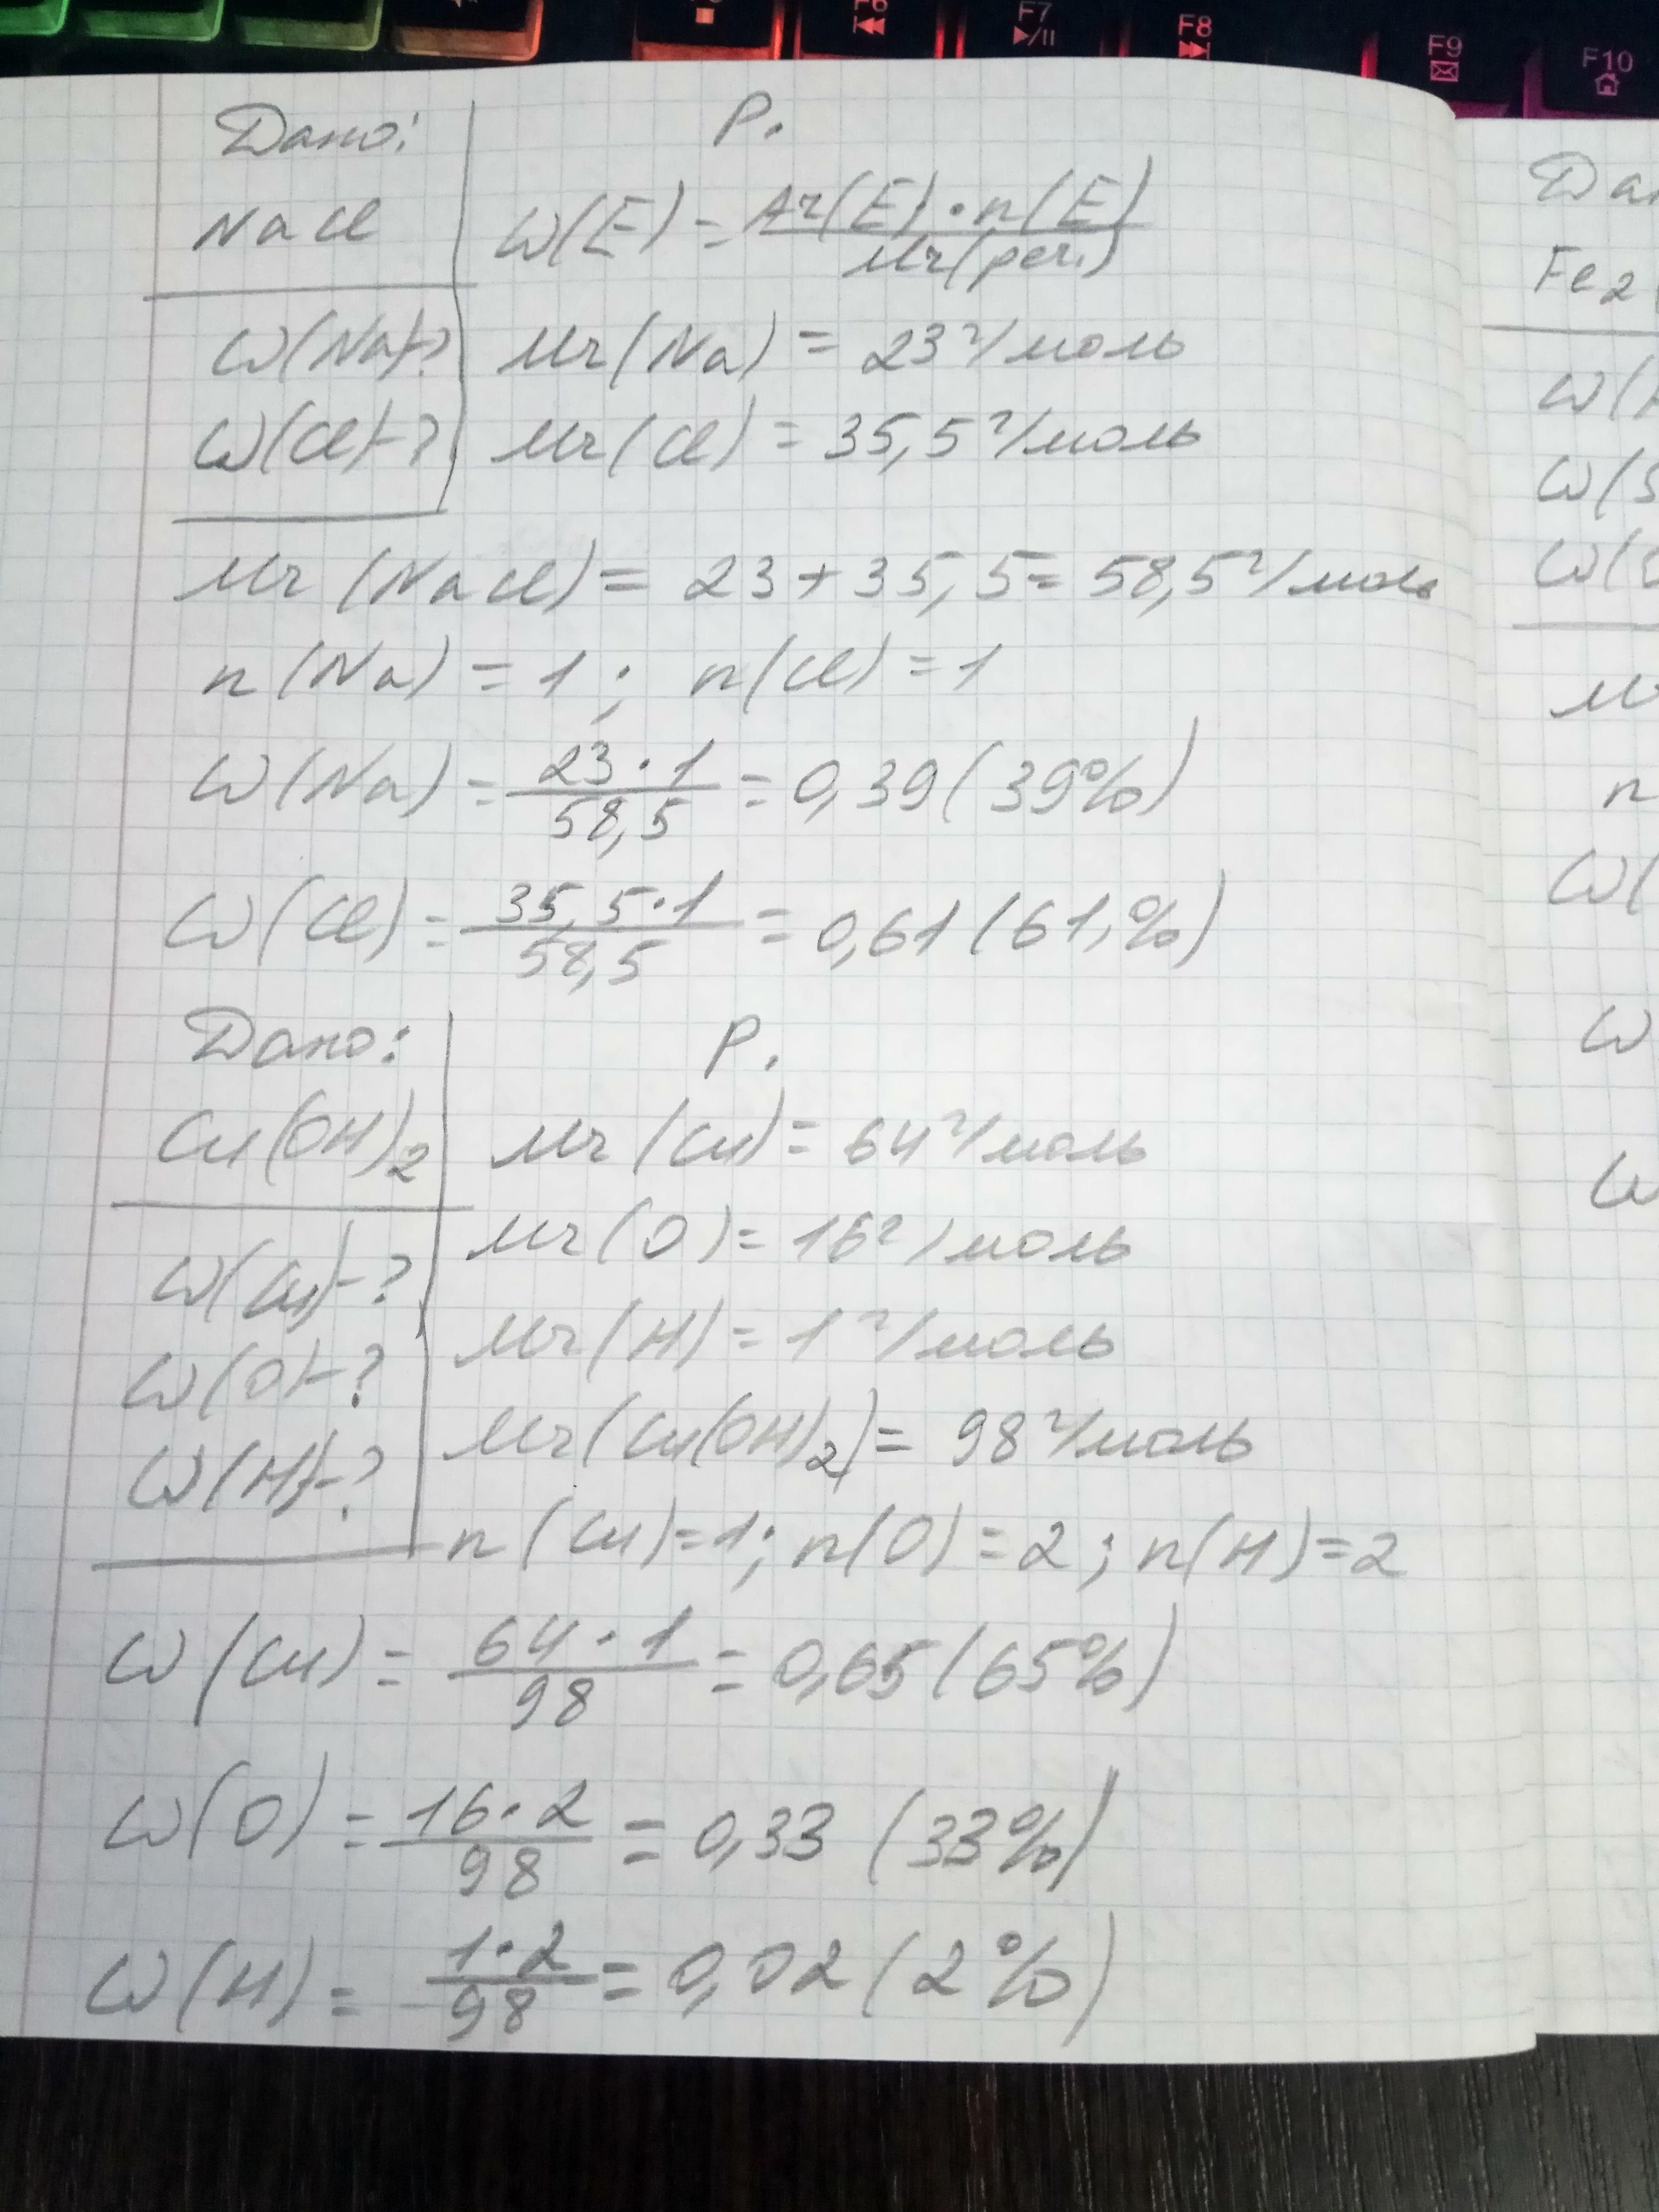 F6
F7
F8
F9
F10
Дано:
NaCl
W(Na)-?
W(Cl)-?
Р.
W(E) = Ar(E)·n(E) / Mr(реч.)
Mr(Na) = 23 г/моль
Mr(Cl) = 35,5 г/моль
Mr(NaCl) = 23+35,5 = 58,5 г/моль
n(Na) = 1; n(Cl) = 1
W(Na) = 23·1 / 58,5 = 0,39 (39%)
W(Cl) = 35,5·1 / 58,5 = 0,61 (61,%)
Дано:
Cu(OH)2
W(Cu)-?
W(O)-?
W(H)-?
Р.
Mr(Cu) = 64 г/моль
Mr(O) = 16 г/моль
Mr(H) = 1 г/моль
Mr(Cu(OH)2) = 98 г/моль
n(Cu)=1; n(O) = 2; n(H)=2
W(Cu) = 64·1 / 98 = 0,65 (65%)
W(O) = 16·2 / 98 = 0,33 (33%)
W(H) = 1·2 / 98 = 0,02 (2%)
Да
Fe2(
W(
W(S
W(
M
n
W(
W
W